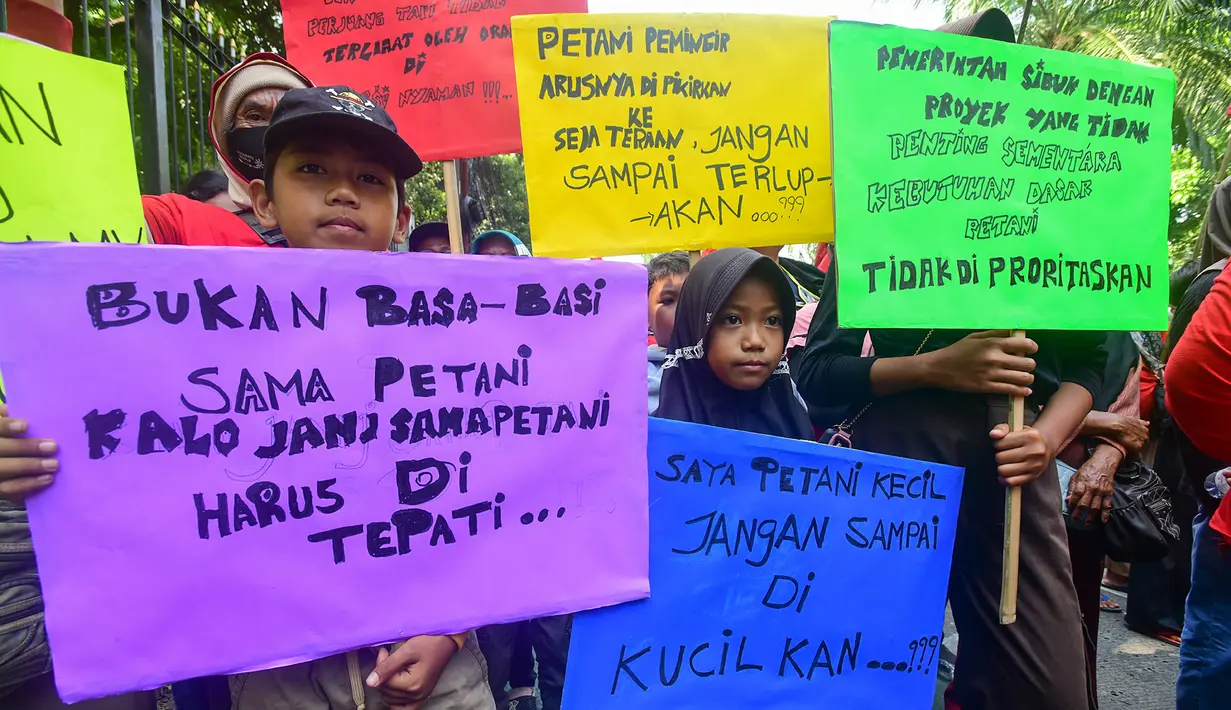 PERJUANG TANI TIDAK
TERLIHAT OLEH ORANG
DI
NYAMAN !!!...
PETANI PEMINGIR
ARUSNYA DI PIKIRKAN
KE
SEJATERAAN, JANGAN
SAMPAI TERLUP-
→AKAN...???
PEMERINTAH SIBUK DENGAN
PROYEK YANG TIDAK
PENTING SEMENTARA
KEBUTUHAN DASAR
PETANI
TIDAK DI PRORITASKAN
BUKAN BASA-BASI
SAMA PETANI
KALO JANJI SAMA PETANI
HARUS DI
TEPATI...
SAYA PETANI KECIL
JANGAN SAMPAI
DI
KUCILKAN...???